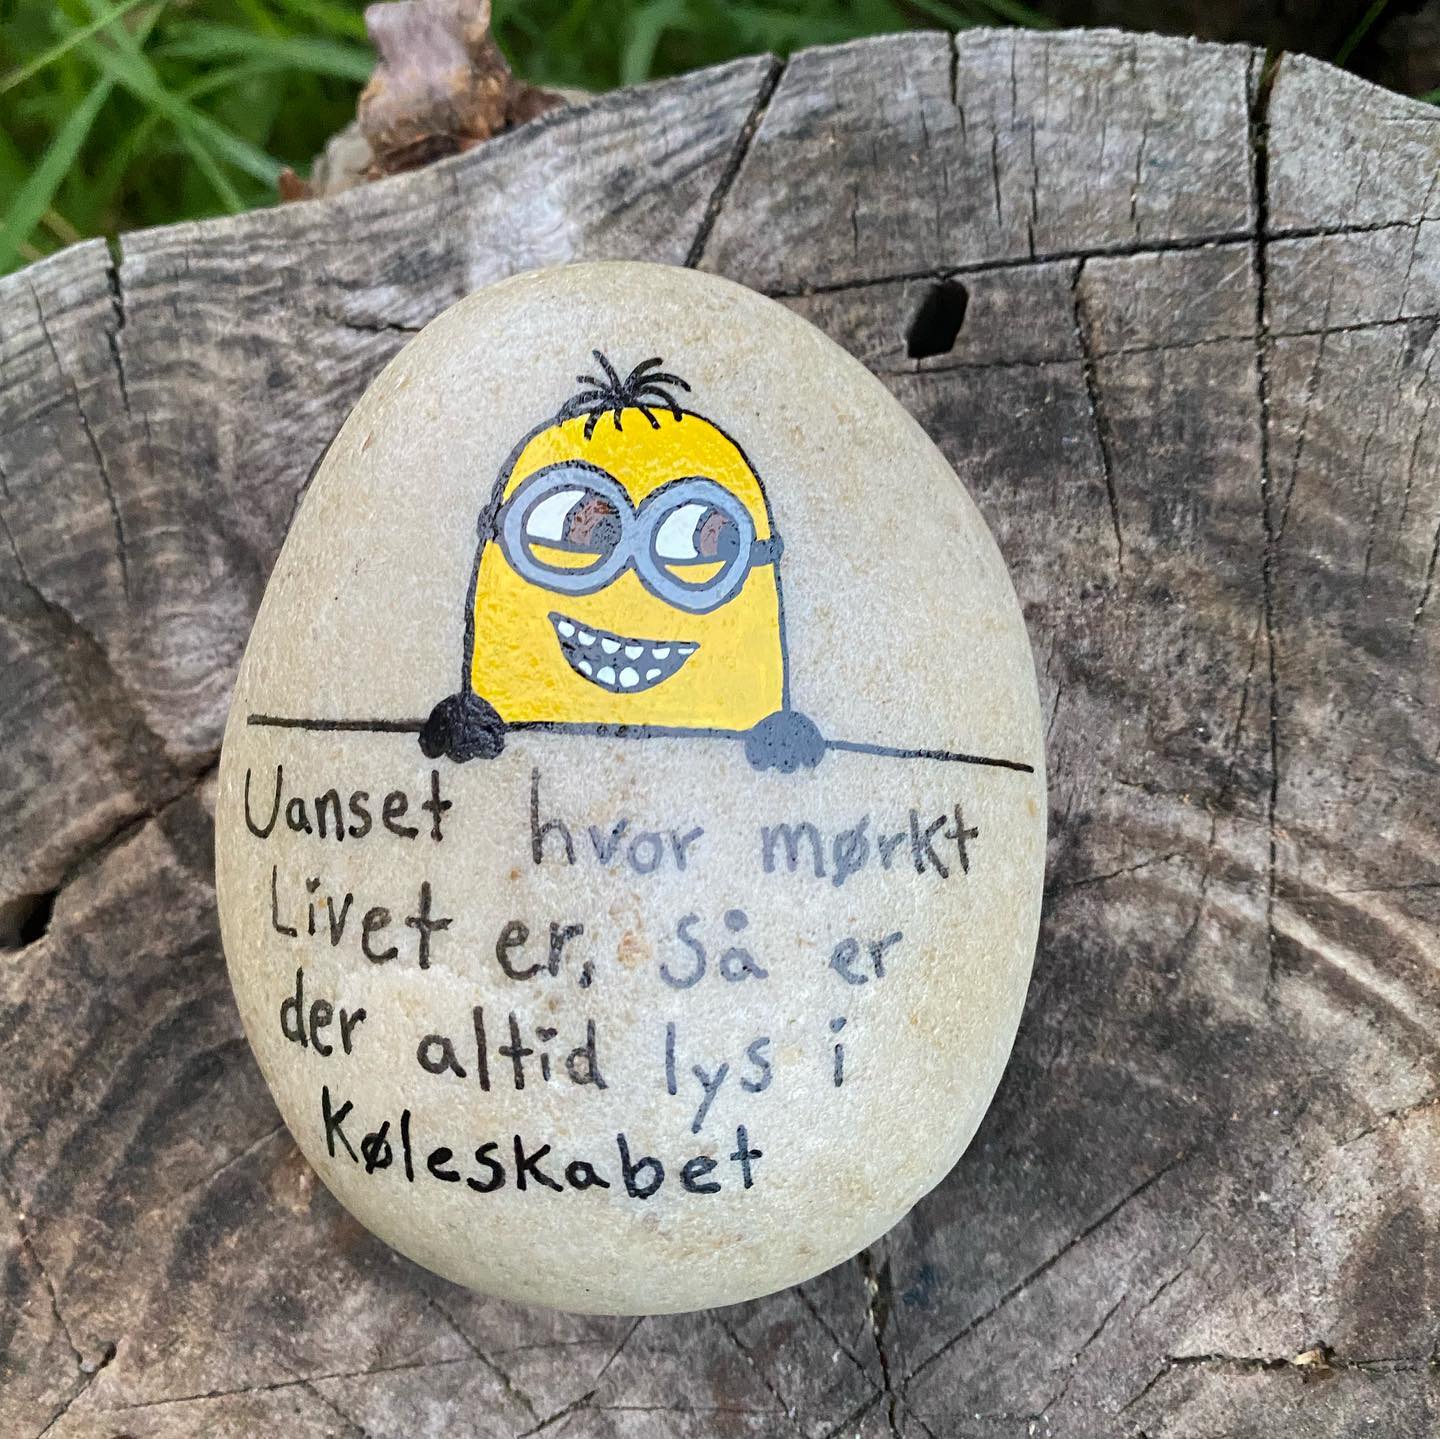 Uanset hvor mørkt
Livet er, så er
der altid lys i
Køleskabet